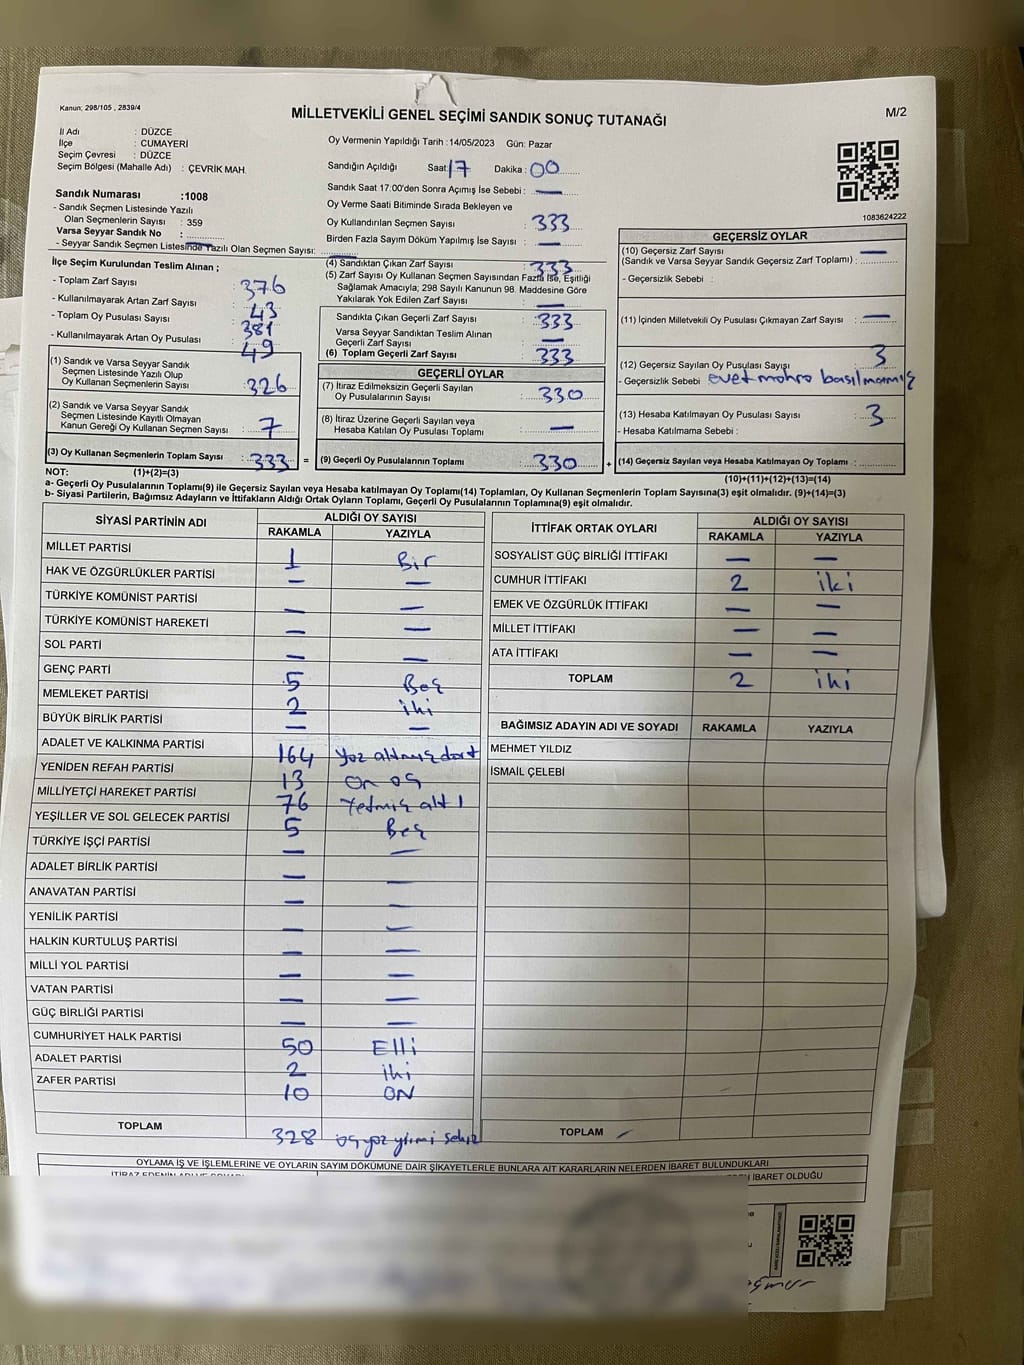 Kanun; 298/105 , 2839/4
MİLLETVEKİLİ GENEL SEÇİMİ SANDIK SONUÇ TUTANAĞI
M/2
İl Adı : DÜZCE
İlçe : CUMAYERİ
Seçim Çevresi : DÜZCE
Seçim Bölgesi (Mahalle Adı) : ÇEVRİK MAH.
Oy Vermenin Yapıldığı Tarih :14/05/2023 Gün: Pazar
Sandığın Açıldığı Saat:17 Dakika :00
Sandık Saat 17:00'den Sonra Açımış İse Sebebi : —
Oy Verme Saati Bitiminde Sırada Bekleyen ve
Oy Kullandırılan Seçmen Sayısı : 333
Birden Fazla Sayım Döküm Yapılmış İse Sayısı : —
1083624222
Sandık Numarası :1008
- Sandık Seçmen Listesinde Yazılı
Olan Seçmenlerin Sayısı : 359
Varsa Seyyar Sandık No : —
- Seyyar Sandık Seçmen Listesinde Yazılı Olan Seçmen Sayısı:
İlçe Seçim Kurulundan Teslim Alınan ;
- Toplam Zarf Sayısı : 376
- Kullanılmayarak Artan Zarf Sayısı : 43
- Toplam Oy Pusulası Sayısı : 381
- Kullanılmayarak Artan Oy Pusulası : 49
(1) Sandık ve Varsa Seyyar Sandık
Seçmen Listesinde Yazılı Olup
Oy Kullanan Seçmenlerin Sayısı : 326
(2) Sandık ve Varsa Seyyar Sandık
Seçmen Listesinde Kayıtlı Olmayan
Kanun Gereği Oy Kullanan Seçmen Sayısı : 7
(3) Oy Kullanan Seçmenlerin Toplam Sayısı : 333 =
(4) Sandıktan Çıkan Zarf Sayısı : 333
(5) Zarf Sayısı Oy Kullanan Seçmen Sayısından Fazla İse, Eşitliği
Sağlamak Amacıyla; 298 Sayılı Kanunun 98. Maddesine Göre
Yakılarak Yok Edilen Zarf Sayısı : —
Sandıkta Çıkan Geçerli Zarf Sayısı : 333
Varsa Seyyar Sandıktan Teslim Alınan
Geçerli Zarf Sayısı : —
(6) Toplam Geçerli Zarf Sayısı : 333
GEÇERLİ OYLAR
(7) İtiraz Edilmeksizin Geçerli Sayılan
Oy Pusulalarının Sayısı : 330
(8) İtiraz Üzerine Geçerli Sayılan veya
Hesaba Katılan Oy Pusulası Toplamı : —
(9) Geçerli Oy Pusulalarının Toplamı : 330 +
GEÇERSİZ OYLAR
(10) Geçersiz Zarf Sayısı
(Sandık ve Varsa Seyyar Sandık Geçersiz Zarf Toplamı) : —
- Geçersizlik Sebebi :
(11) İçinden Milletvekili Oy Pusulası Çıkmayan Zarf Sayısı : —
(12) Geçersiz Sayılan Oy Pusulası Sayısı : 3
- Geçersizlik Sebebi evet mohro basılmamış
(13) Hesaba Katılmayan Oy Pusulası Sayısı : 3
- Hesaba Katılmama Sebebi :
(14) Geçersiz Sayılan veya Hesaba Katılmayan Oy Toplamı :
NOT: (1)+(2)=(3) (10)+(11)+(12)+(13)=(14)
a- Geçerli Oy Pusulalarının Toplamı(9) ile Geçersiz Sayılan veya Hesaba katılmayan Oy Toplamı(14) Toplamları, Oy Kullanan Seçmenlerin Toplam Sayısına(3) eşit olmalıdır. (9)+(14)=(3)
b- Siyasi Partilerin, Bağımsız Adayların ve İttifakların Aldığı Ortak Oyların Toplamı, Geçerli Oy Pusulalarının Toplamına(9) eşit olmalıdır.
SİYASİ PARTİNİN ADI ALDIĞI OY SAYISI
RAKAMLA YAZIYLA
MİLLET PARTİSİ 1 Bir
HAK VE ÖZGÜRLÜKLER PARTİSİ — —
TÜRKİYE KOMÜNİST PARTİSİ — —
TÜRKİYE KOMÜNİST HAREKETİ — —
SOL PARTİ — —
GENÇ PARTİ 5 Beş
MEMLEKET PARTİSİ 2 iki
BÜYÜK BİRLİK PARTİSİ — —
ADALET VE KALKINMA PARTİSİ 164 yoz altmış dort
YENİDEN REFAH PARTİSİ 13 on oç
MİLLİYETÇİ HAREKET PARTİSİ 76 Yetmiş altı
YEŞİLLER VE SOL GELECEK PARTİSİ 5 Beş
TÜRKİYE İŞÇİ PARTİSİ — —
ADALET BİRLİK PARTİSİ — —
ANAVATAN PARTİSİ — —
YENİLİK PARTİSİ — —
HALKIN KURTULUŞ PARTİSİ — —
MİLLİ YOL PARTİSİ — —
VATAN PARTİSİ — —
GÜÇ BİRLİĞİ PARTİSİ — —
CUMHURİYET HALK PARTİSİ 50 Elli
ADALET PARTİSİ 2 iki
ZAFER PARTİSİ 10 ON
TOPLAM 328 oç yoz yirmi sekiz
İTTİFAK ORTAK OYLARI ALDIĞI OY SAYISI
RAKAMLA YAZIYLA
SOSYALİST GÜÇ BİRLİĞİ İTTİFAKI — —
CUMHUR İTTİFAKI 2 iki
EMEK VE ÖZGÜRLÜK İTTİFAKI — —
MİLLET İTTİFAKI — —
ATA İTTİFAKI — —
TOPLAM 2 iki
BAĞIMSIZ ADAYIN ADI VE SOYADI RAKAMLA YAZIYLA
MEHMET YILDIZ
İSMAİL ÇELEBİ
TOPLAM —
OYLAMA İŞ VE İŞLEMLERİNE VE OYLARIN SAYIM DÖKÜMÜNE DAİR ŞİKAYETLERLE BUNLARA AİT KARARLARIN NELERDEN İBARET BULUNDUKLARI
İBARET OLDUĞU